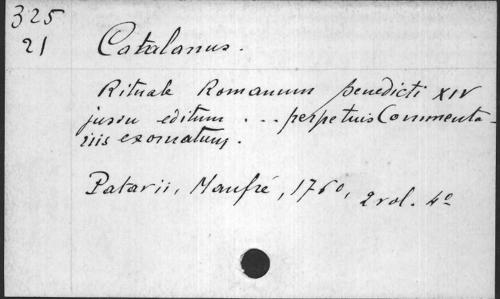 325
21
Catalanus.
Rituale Romanum Benedicti XIV
jussu editum ... perpetuis Commenta-
riis exornatum.
Patavii, Manfré, 1760, 2 vol. 4º